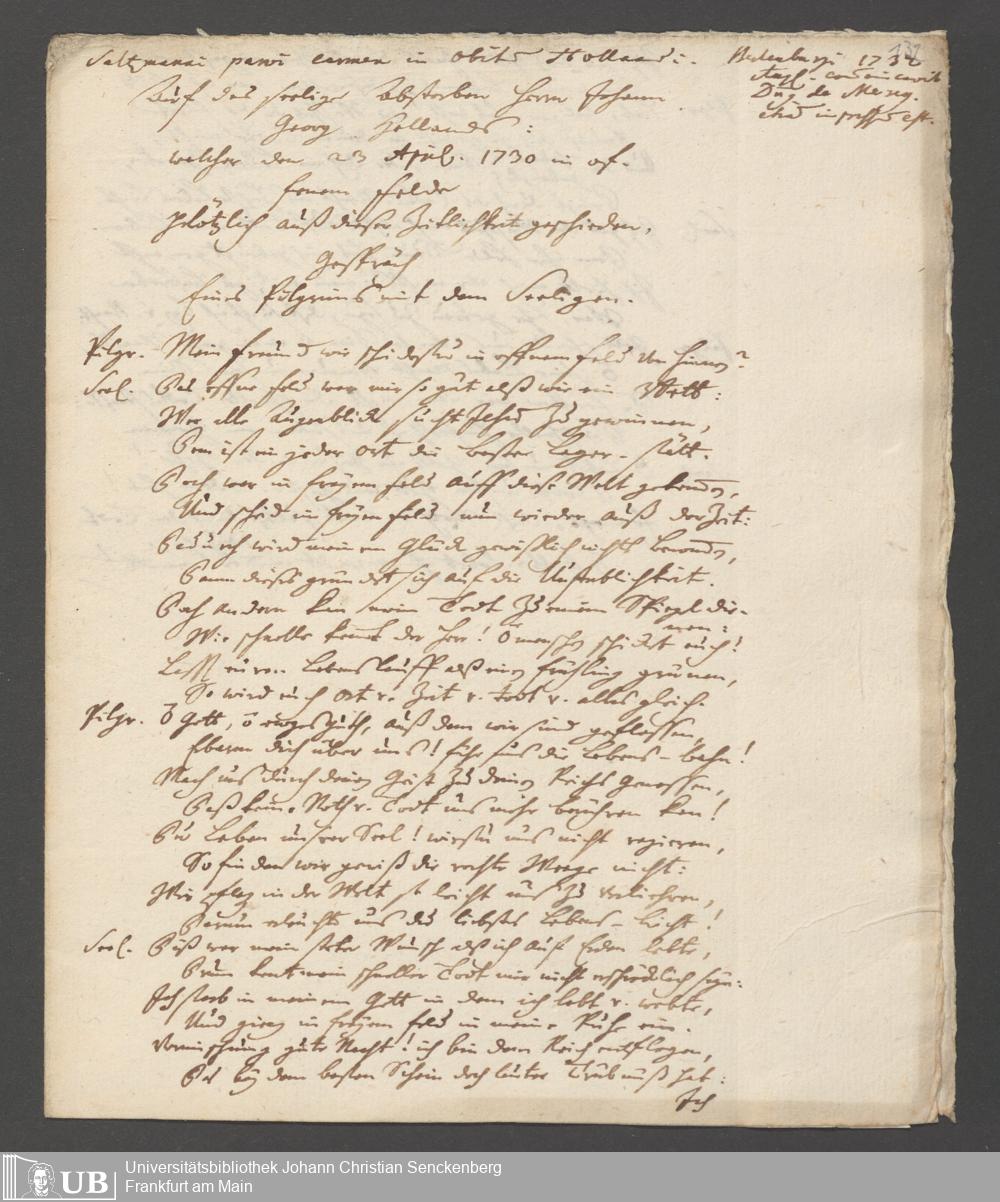 Saltzmanni parvi carmen in obitū Hollandi.
132
1730
Auf das seelige Absterben Herrn Johann
Georg Hollands:
welcher den 23 April. 1730 in of-
fenem Felde
plötzlich auß dieser Zeitlichkeit geschieden,
Gespräch
Eines Pilgrims mit dem Seeligen.
Pilgr. Mein Freund wie schiedestu in offnem Feld von hinnen?
Seel. Das offne Feld war mir so gut alß wie ein Bett:
Wer alle Augenblick sucht Jesum zu gewinnen,
Dem ist ein jeder Ort die beste Lager-stätt.
Doch war in freyem Feld auff diese Welt
Und schied in freyem Feld nun wieder auß der Zeit:
Dadurch wird meinem Glück gewißlich nichts benommen,
Dann dieses gründet sich auf die Unsterblichkeit.
Doch andern kan mein Todt zu einem Spiegel die-
nen:
Wie schnelle komt der Herr! O menschen schicket euch!
Lasst euren Lebenslauff alß einen Frühling grünen,
So wird euch Ort v. Zeit v. Todt v. alles gleich.
Pilgr. O Gott, o ewges Guth, auß dem wir sind geflossen,
Erbarm dich über uns! führ uns die Lebens-bahn!
Mach uns durch deinen Geist zu deines Reichs genossen,
Daß keine Noth v. Todt uns mehr berühren kan!
Du Leben unsrer Seel! wirstu uns nicht regieren,
So finden wir gewiß die rechte Weege nicht:
Wir pflegen in der Welt so leicht uns zu verliehren,
Darum erleucht uns du liebstes Lebens-Licht!
Seel. Diß war mein steter Wunsch alß ich auf Erden lebte,
Drum kont mein schneller Todt mir nicht erschröcklich seyn:
Ich starb in meinem Gott in dem ich lebt v. webte,
Und gieng in freyem Feld in meine Ruhe ein.
gute Nacht! ich bin dem Reich entflogen,
Das bey dem besten Schein doch lauter Trübnuß hat:
Ich
UB
Universitätsbibliothek Johann Christian Senckenberg
Frankfurt am Main